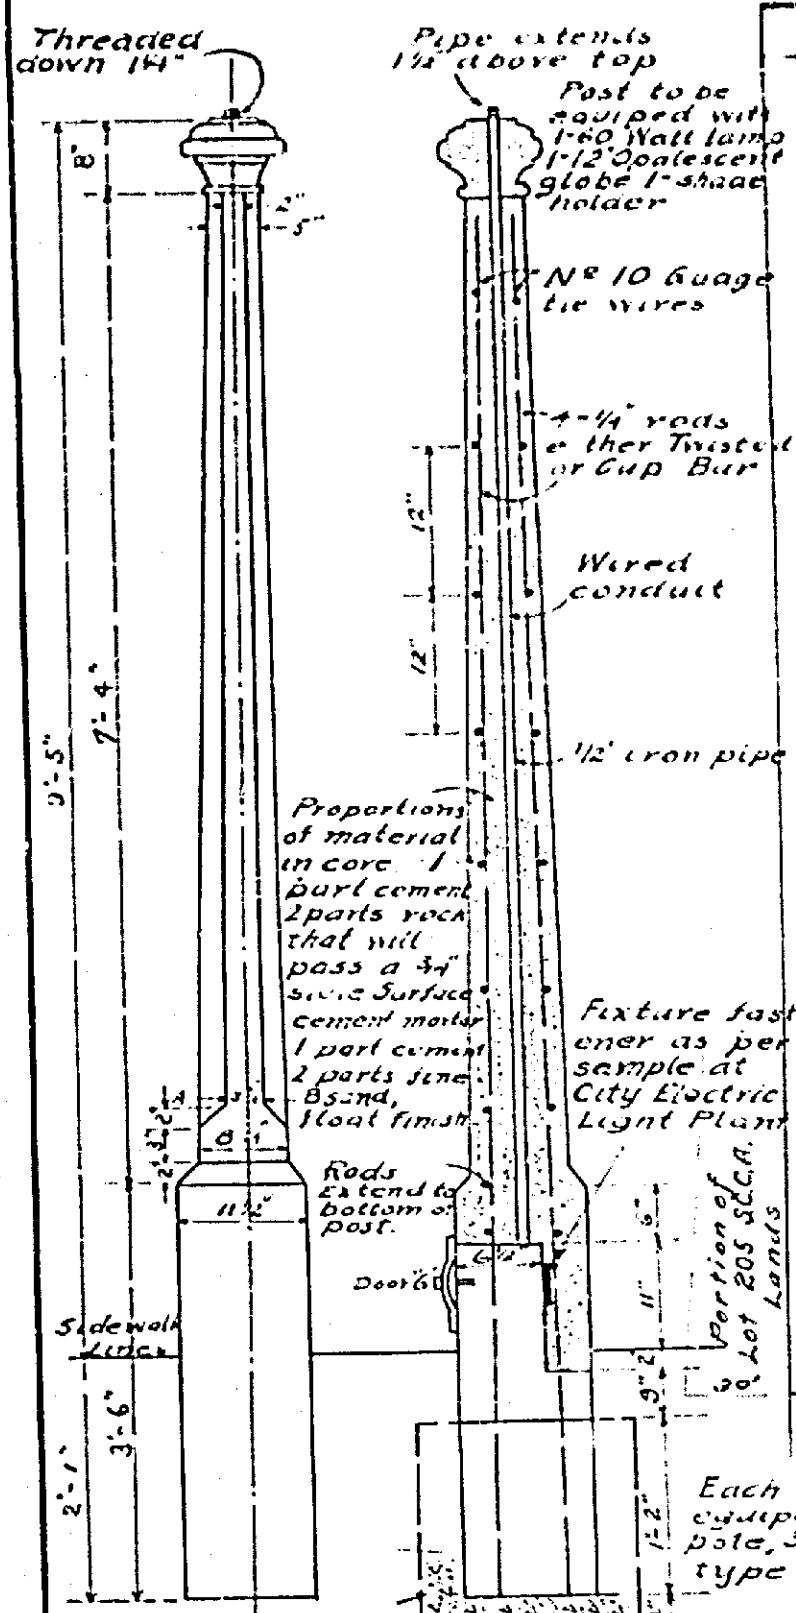 Threaded
down 1¼"
Pipe extends
1½" above top
Post to be
equiped with
1-60 Watt lamp
1-12" Opalescent
globe 1-shade
holder
8"
5"
Nº 10 Guage
tie wires
4-¼" rods
Twisted
or Cup Bar
12"
Wired
conduit
12"
7'-4"
9'-5"
½" iron pipe
Proportions
of material
in core 1
part cement
2 parts rock
that will
pass a ¾"
Surface
cement mortar
1 part cement
2 parts fine
sand,
float finish
Fixture fast
ener as per
sample at
City Electric
Light Plant
Rods
Extend to
bottom of
post.
11½"
6"
Door
11"
Portion of
Lot 205 S.C.C.A.
Lands
Sidewalk
Line
9"
2
2'-1"
3'-6"
1'-2"
Each
equip
pole,
type